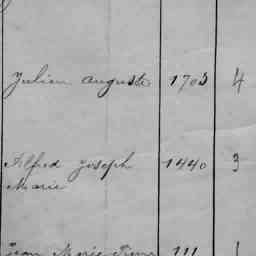 Julien Auguste 1703 4
Alfred Joseph 1440 3
Marie
Jean Marie Pierre 111 1